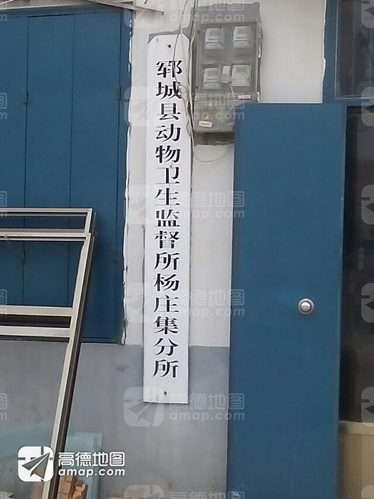 郓城县动物卫生监督所杨庄集分所
高德地图
amap.com